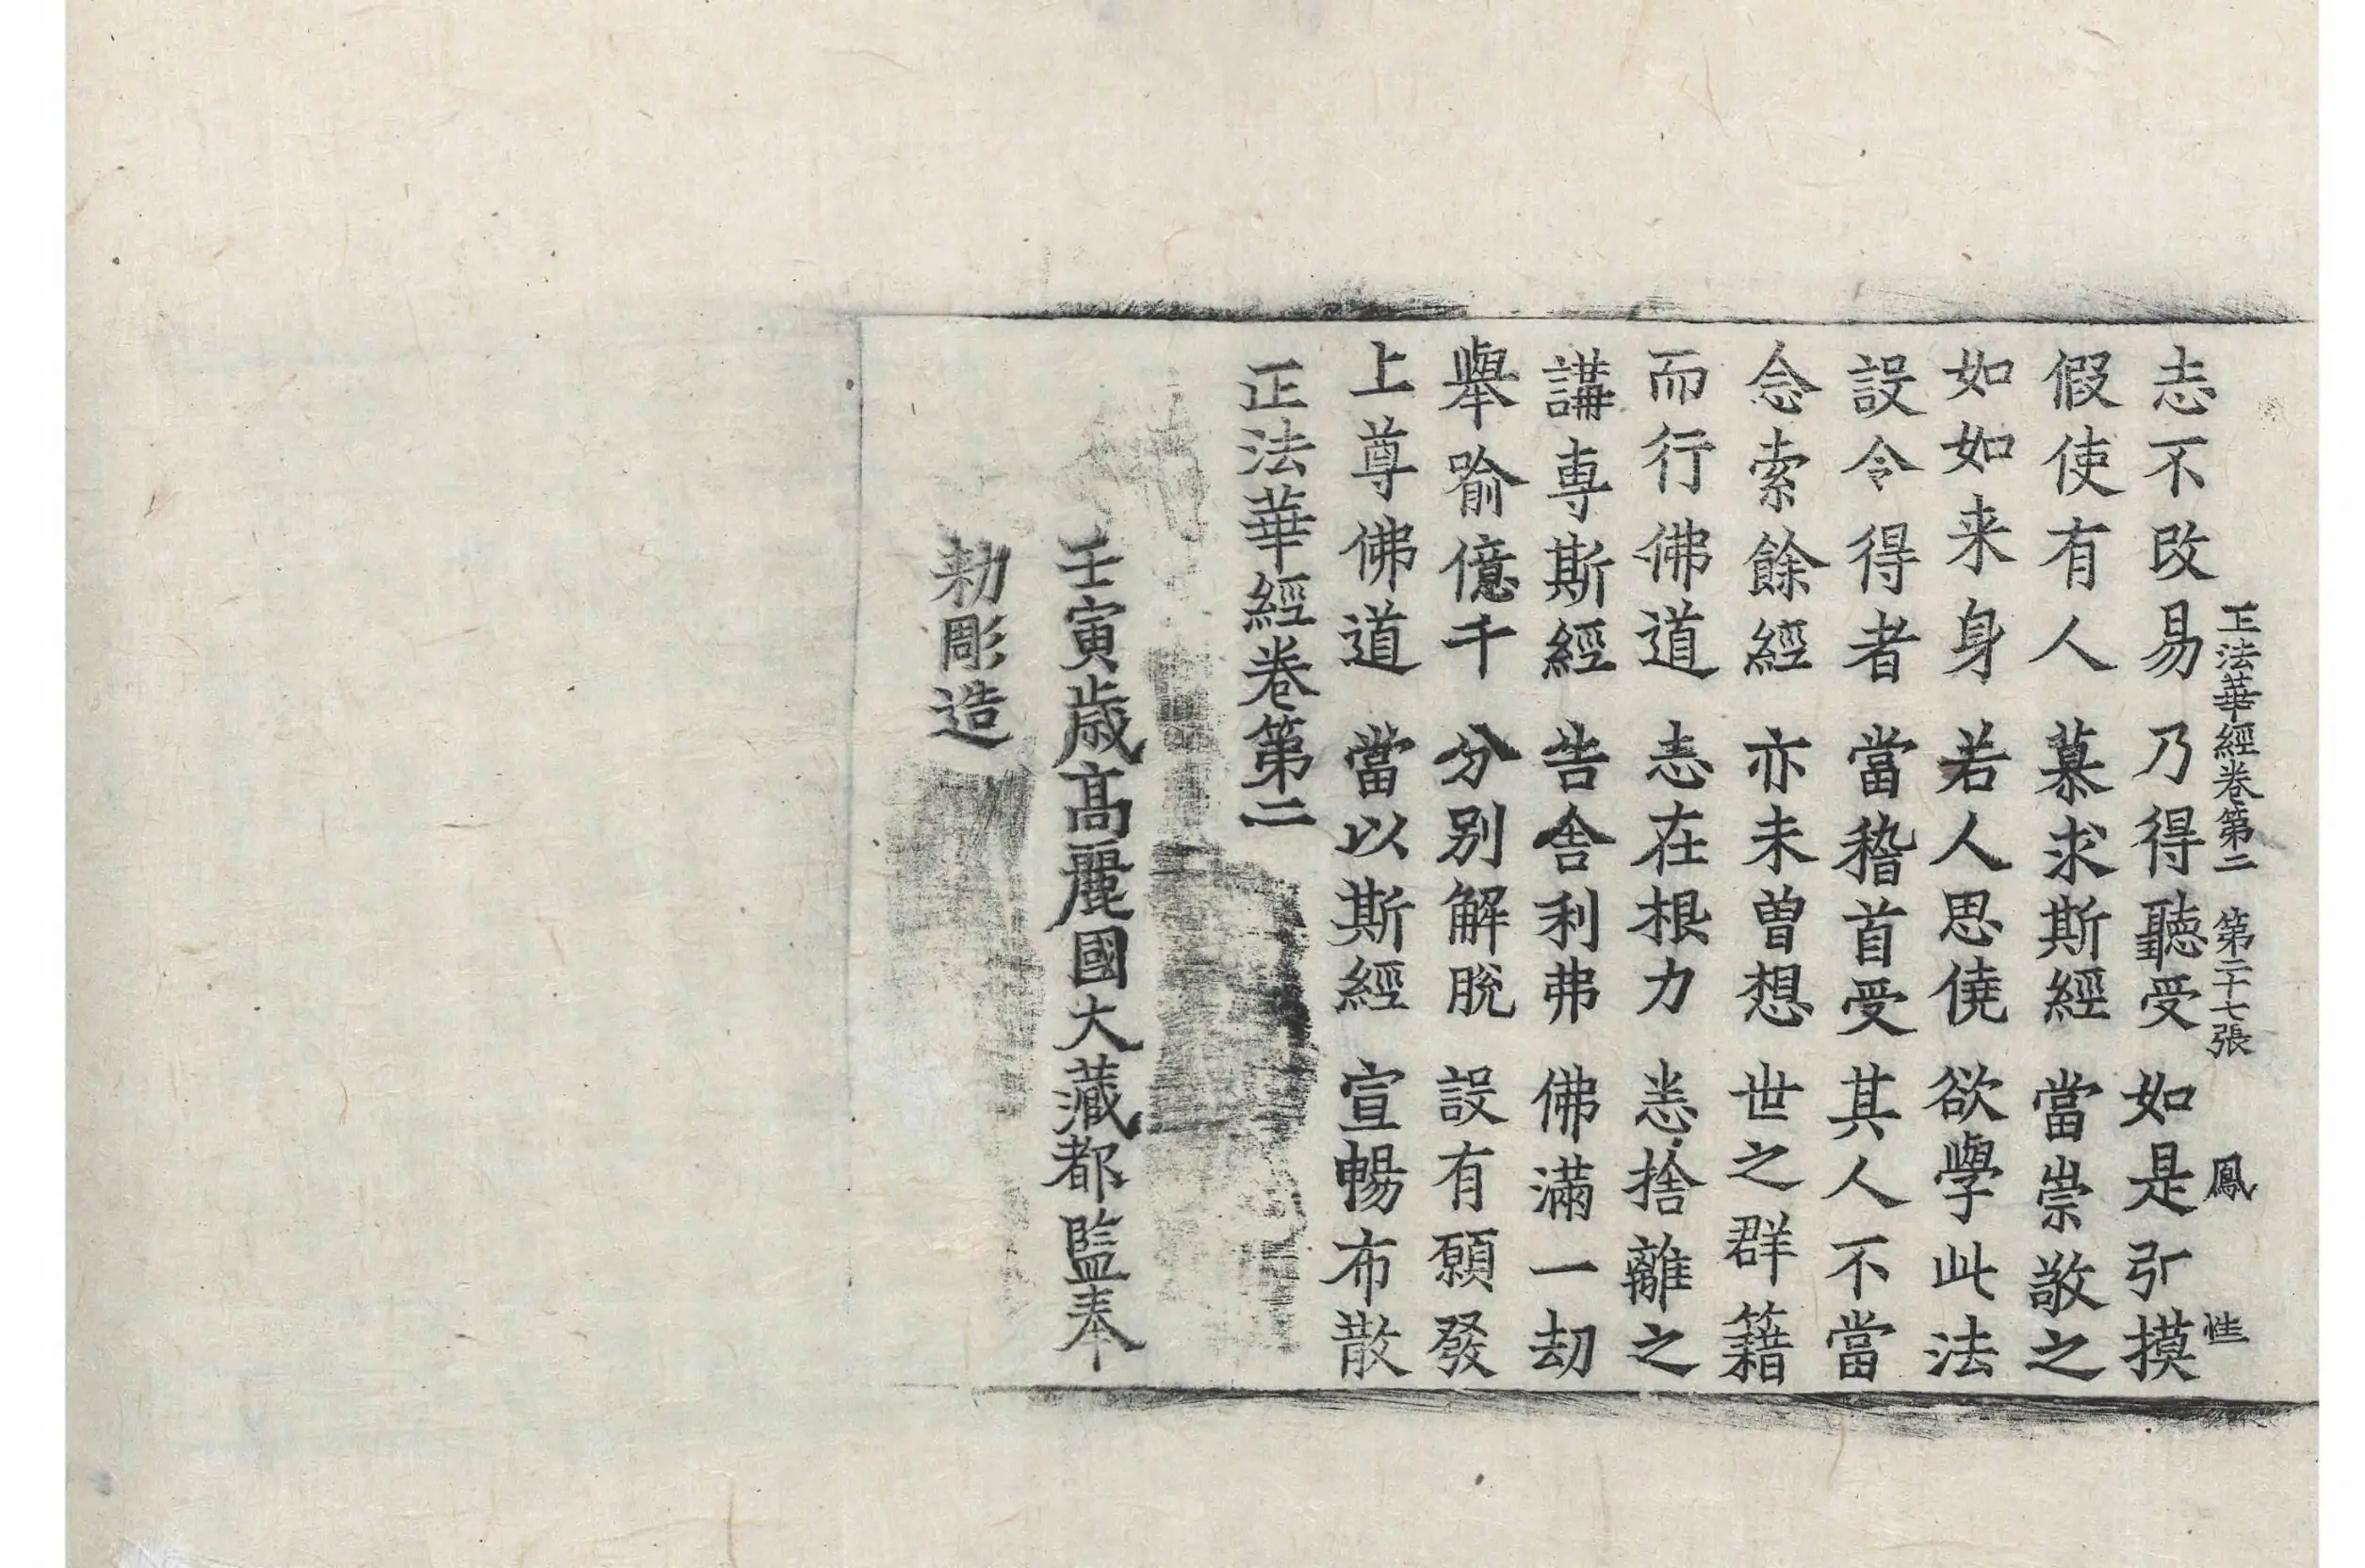 正法華經卷第二 第二十七張 鳳 𢙣
志不改易 乃得聽受 如是引摸
假使有人 慕求斯經 當崇敬之
如如来身 若人思僥 欲學此法
設令得者 當稽首受 其人不當
念索餘經 亦未曾想 世之群籍
而行佛道 志在根力 悉捨離之
講專斯經 告舍利弗 佛滿一劫
舉喻億千 分别解脫 設有願發
上尊佛道 當以斯經 宣暢布散
正法華經卷第二
壬寅歲高麗國大藏都監奉
勑彫造